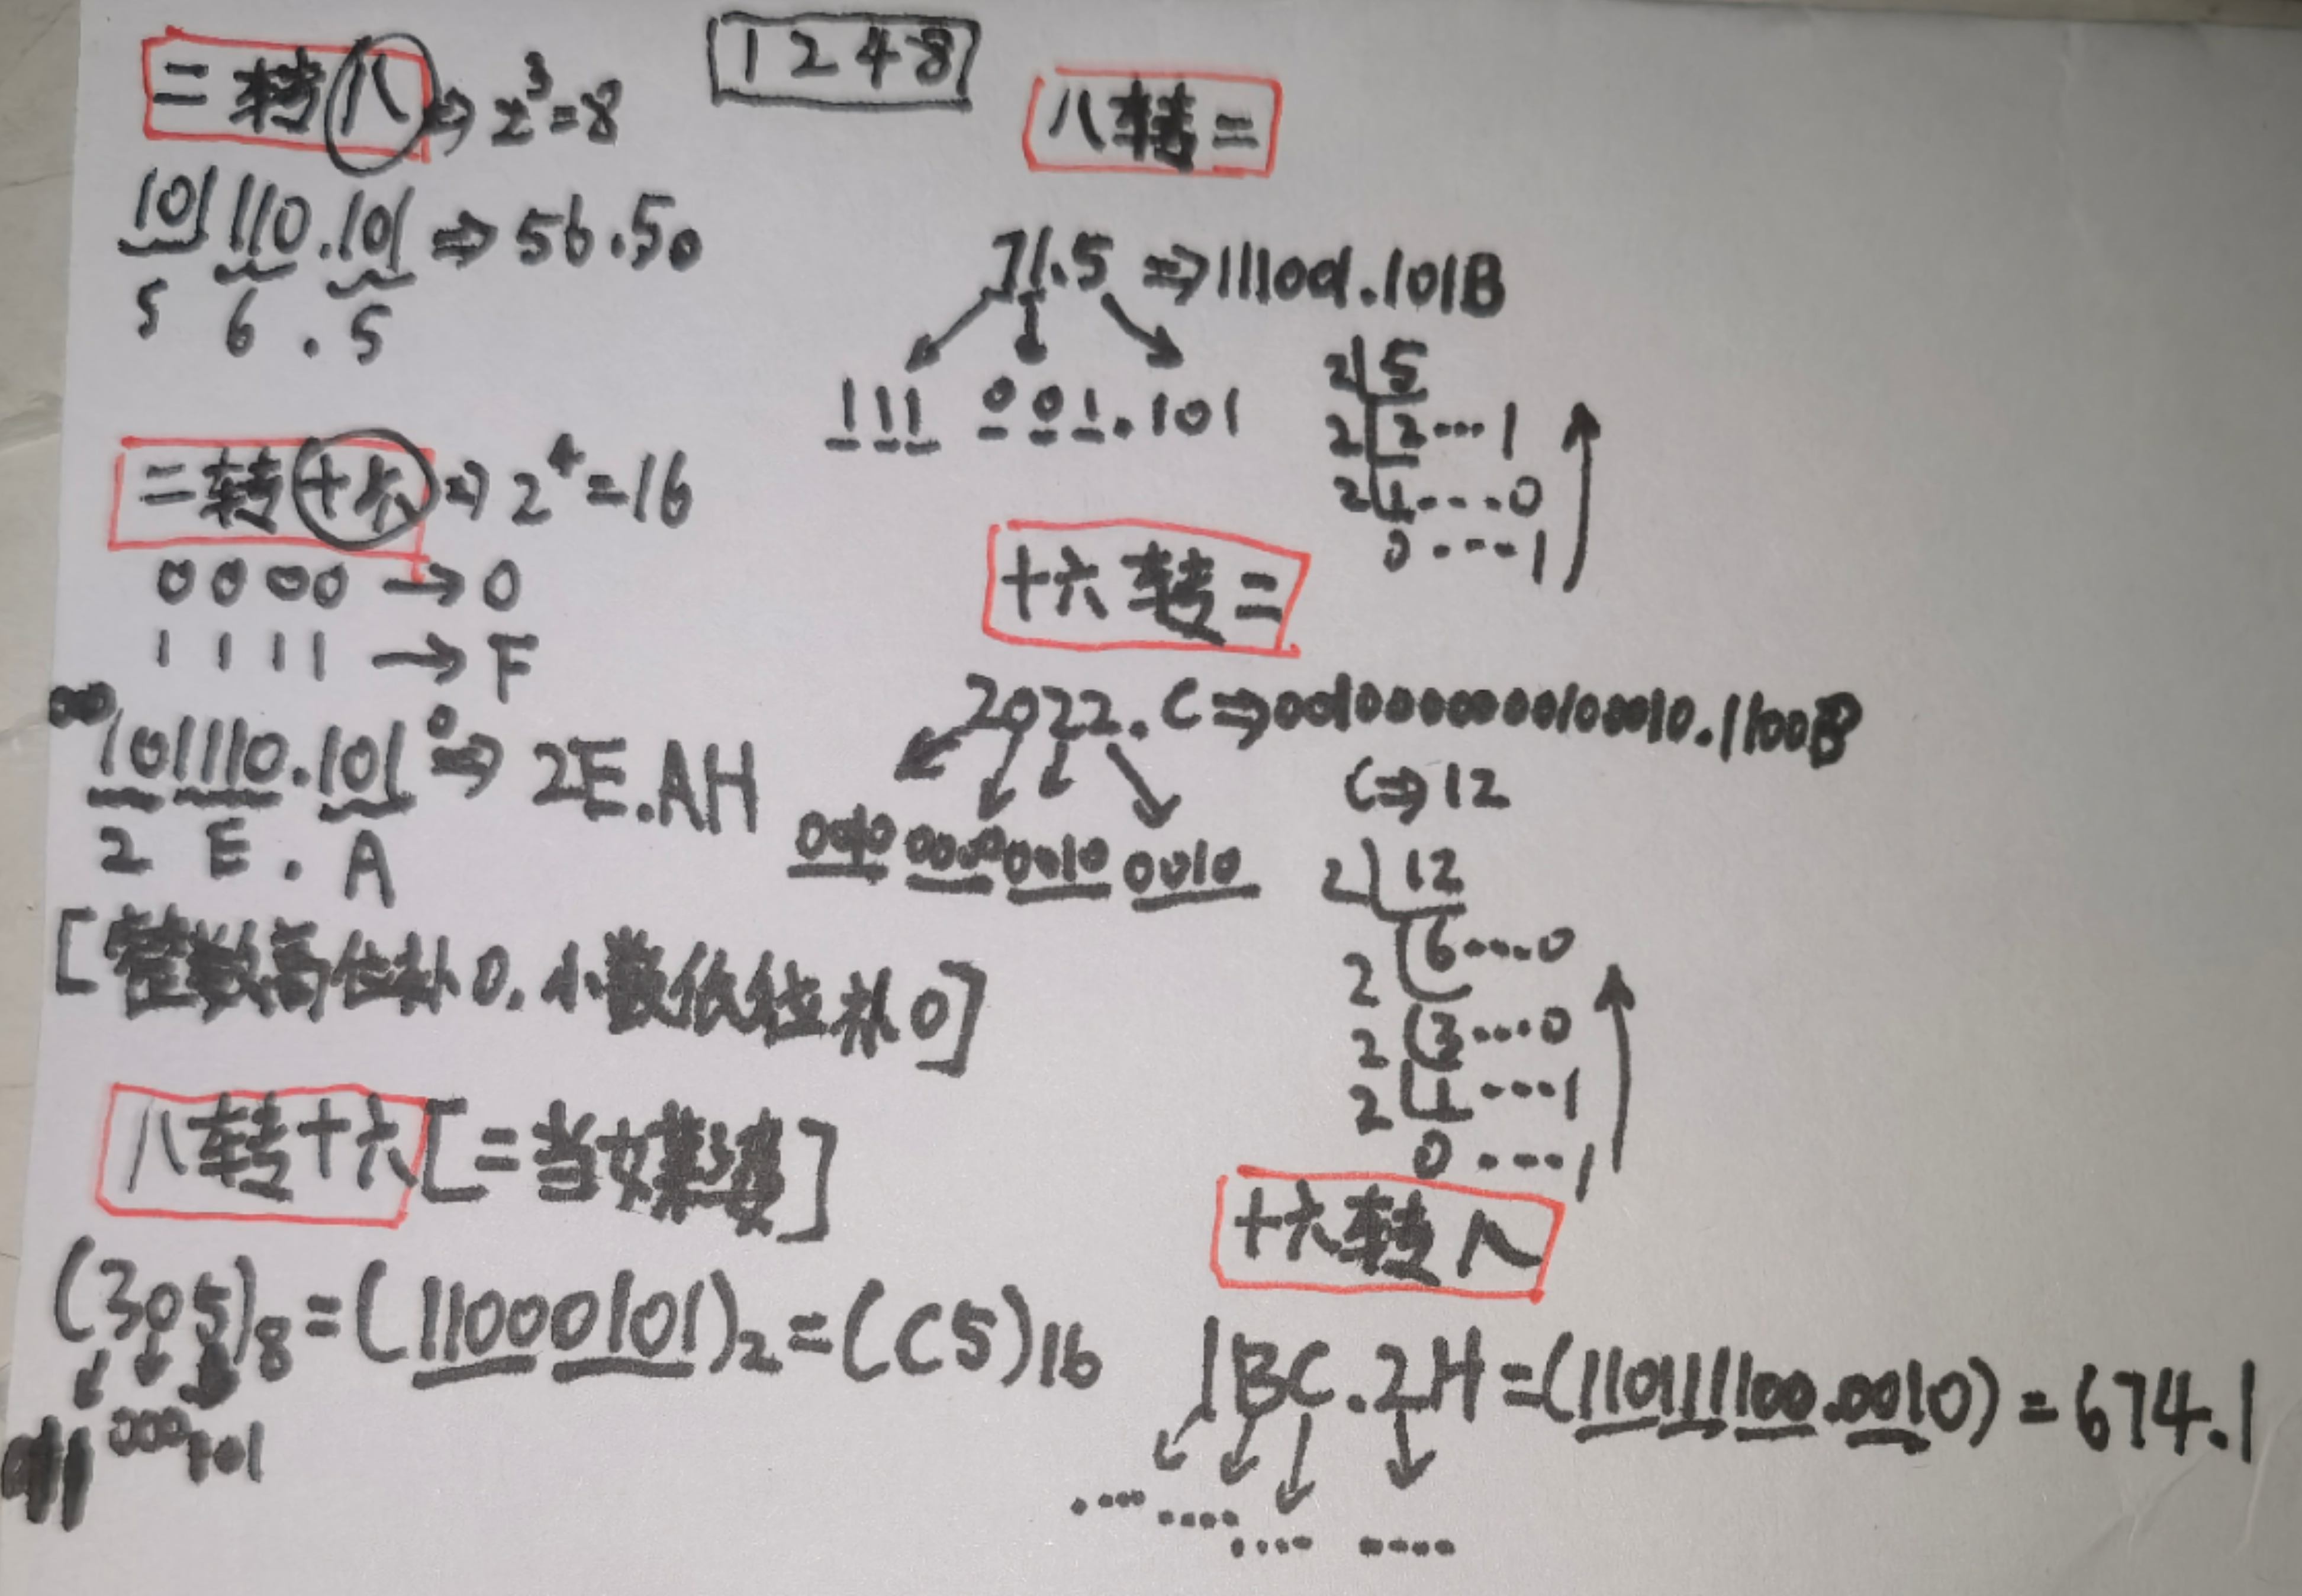 1 2 4 8
二转八⇒2³=8
101110.101⇒56.5O
5 6 . 5
二转十六⇒2⁴=16
0000→0
1111→F
00
101110.101⁰⇒2E.AH
2 E . A
[整数高位补0.小数低位补0]
八转十六[二当媒婆]
(305)₈=(11000101)₂=(C5)₁₆
011 000 101
八转二
71.5⇒111001.101B
111 001.101
2 5
2 2...1
2 1....0
0....1
十六转二
2022.C⇒0010000000100010.1100B
0010 0000 0010 0010
C⇒12
2 12
2 6....0
2 3....0
2 1....1
0....1
十六转八
1BC.2H=(110111100.0010)=674.1
.... .... .... ....